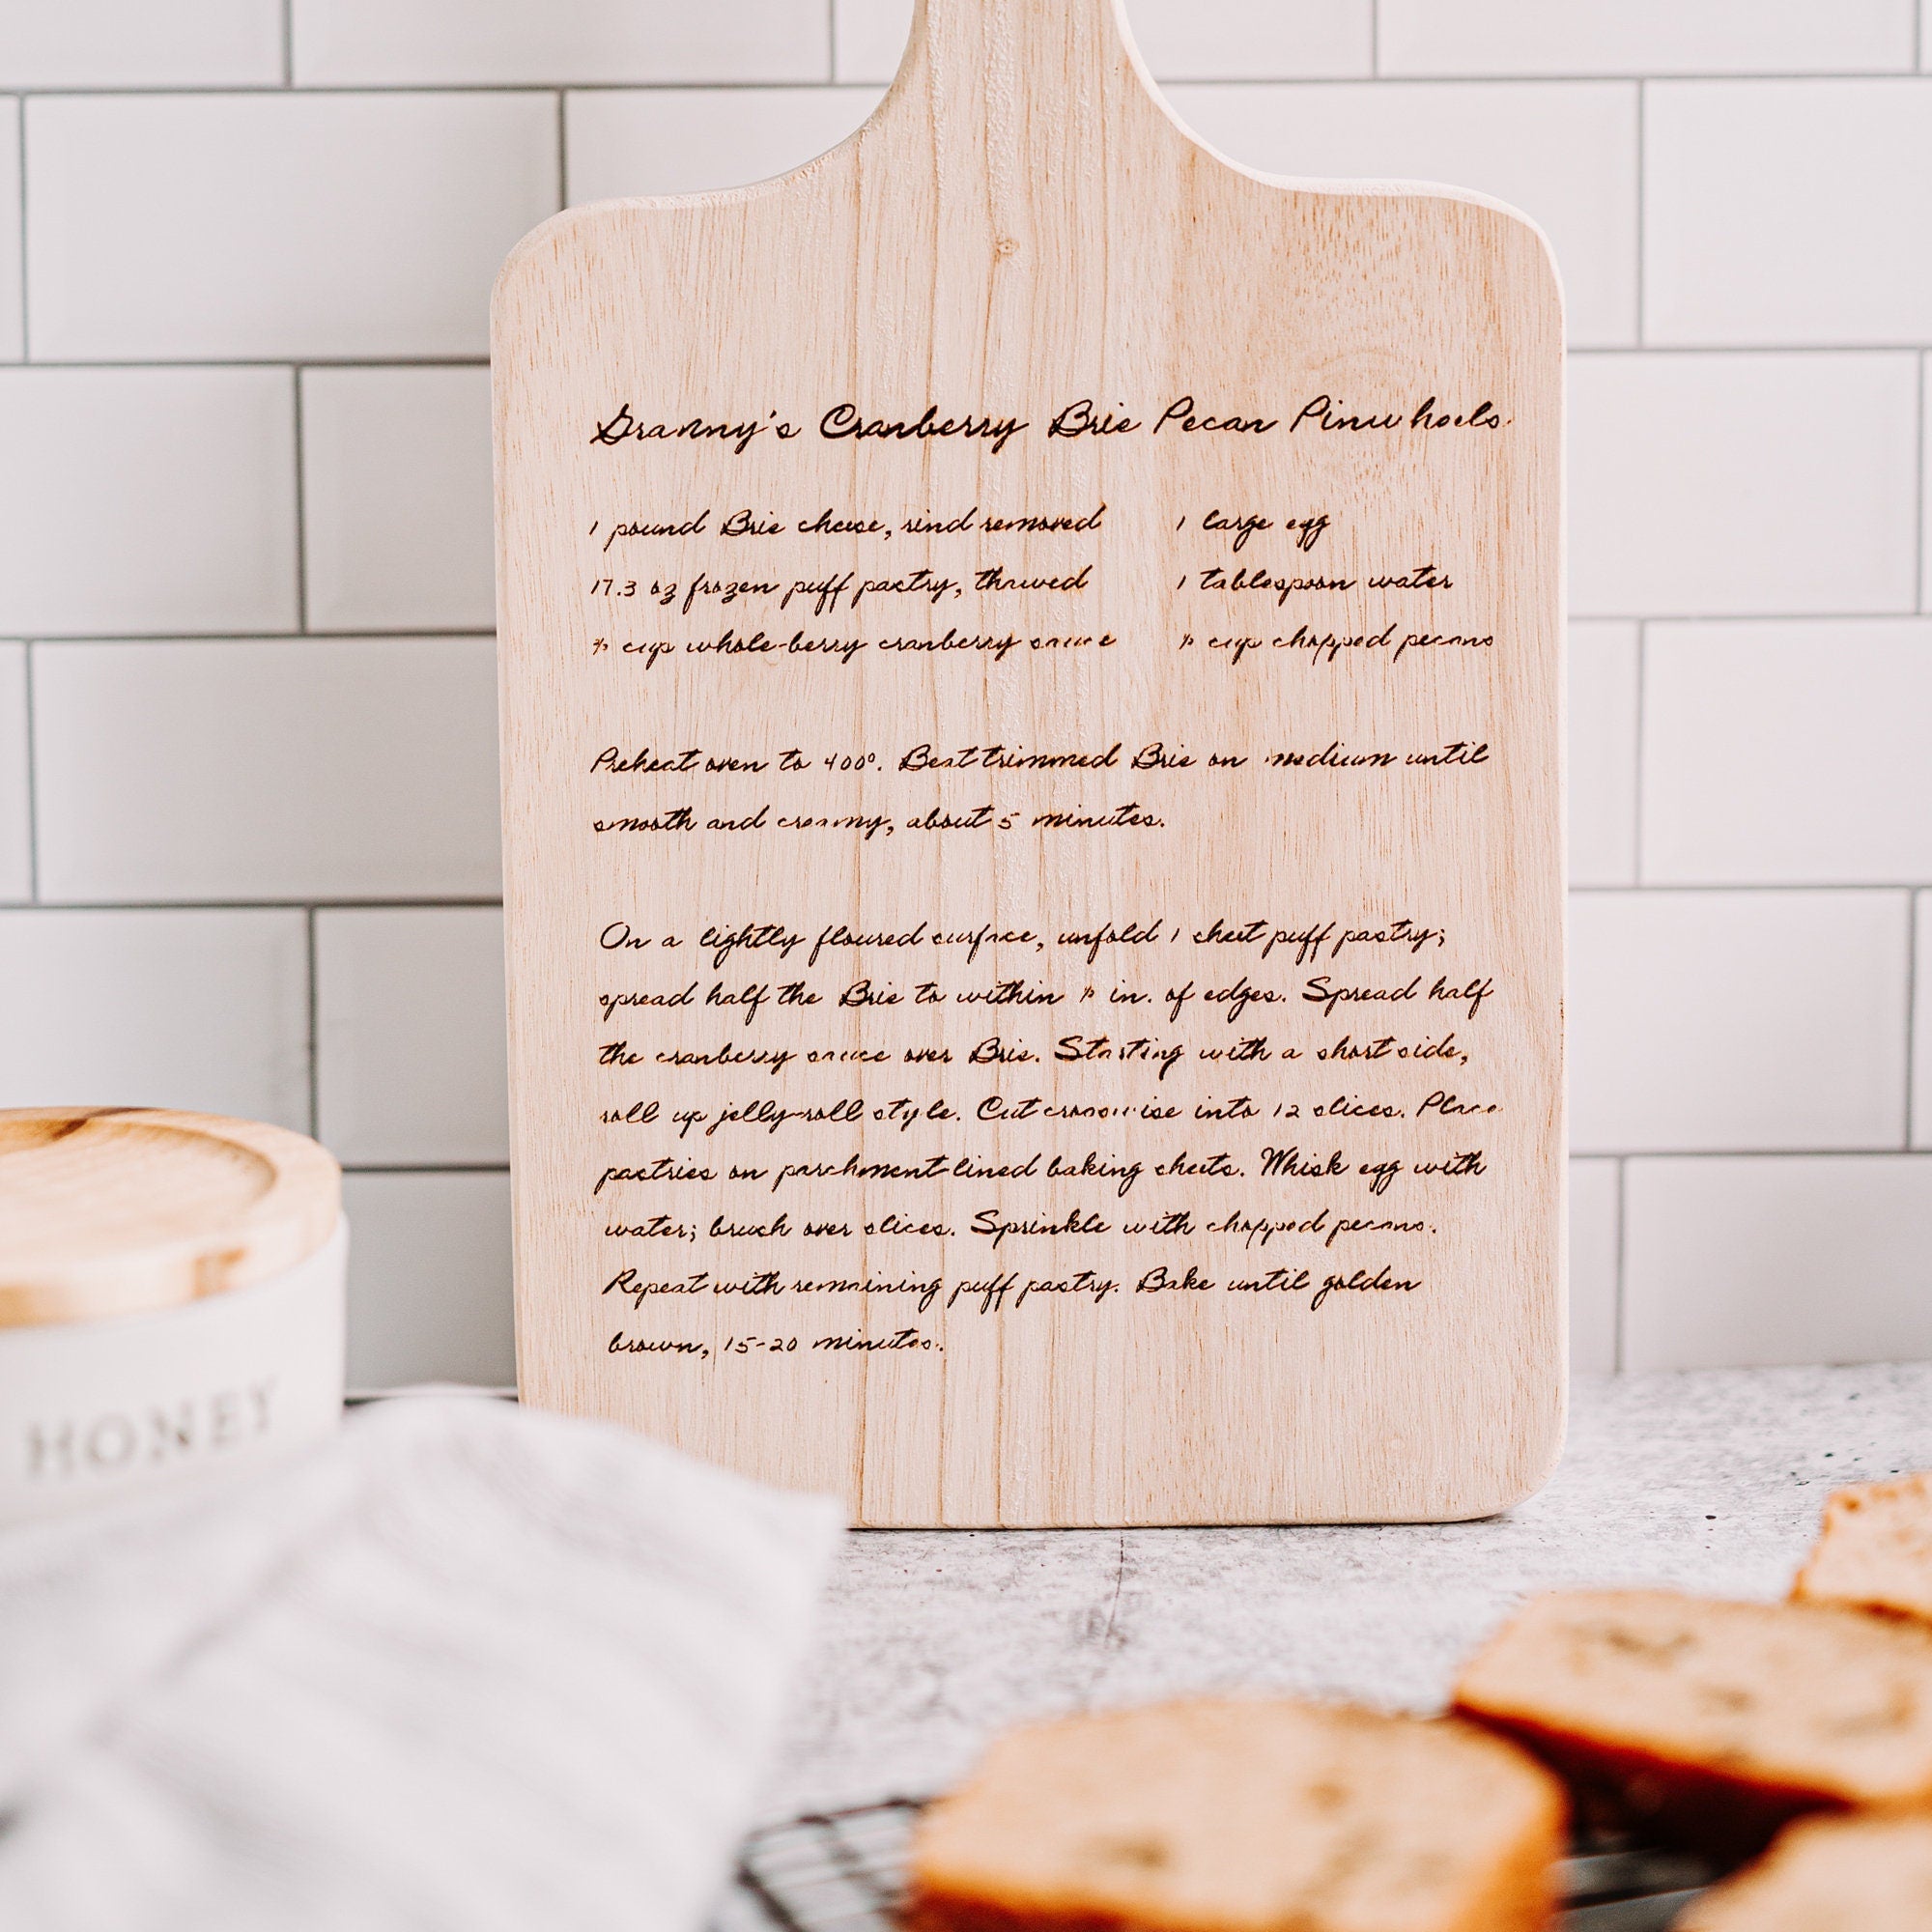 Granny's Cranberry Brie Pecan Pinwheels
1 pound Brie cheese, rind removed
17.3 oz frozen puff pastry, thawed
cup whole-berry cranberry sauce
1 large egg
1 tablespoon water
cup chopped pecans
Preheat oven to 400°. Beat trimmed Brie on medium until
smooth and creamy, about 5 minutes.
On a lightly floured surface, unfold 1 sheet puff pastry;
spread half the Brie to within in. of edges. Spread half
the cranberry sauce over Brie. Starting with a short side,
roll up jelly-roll style. Cut crosswise into 12 slices. Place
pastries on parchment-lined baking sheets. Whisk egg with
water; brush over slices. Sprinkle with chopped pecans.
Repeat with remaining puff pastry. Bake until golden
brown, 15-20 minutes.
HONEY